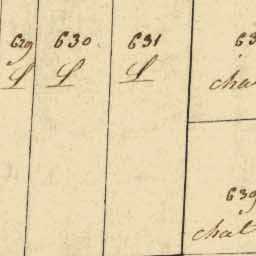 629 630 631 63
cha
639
chat